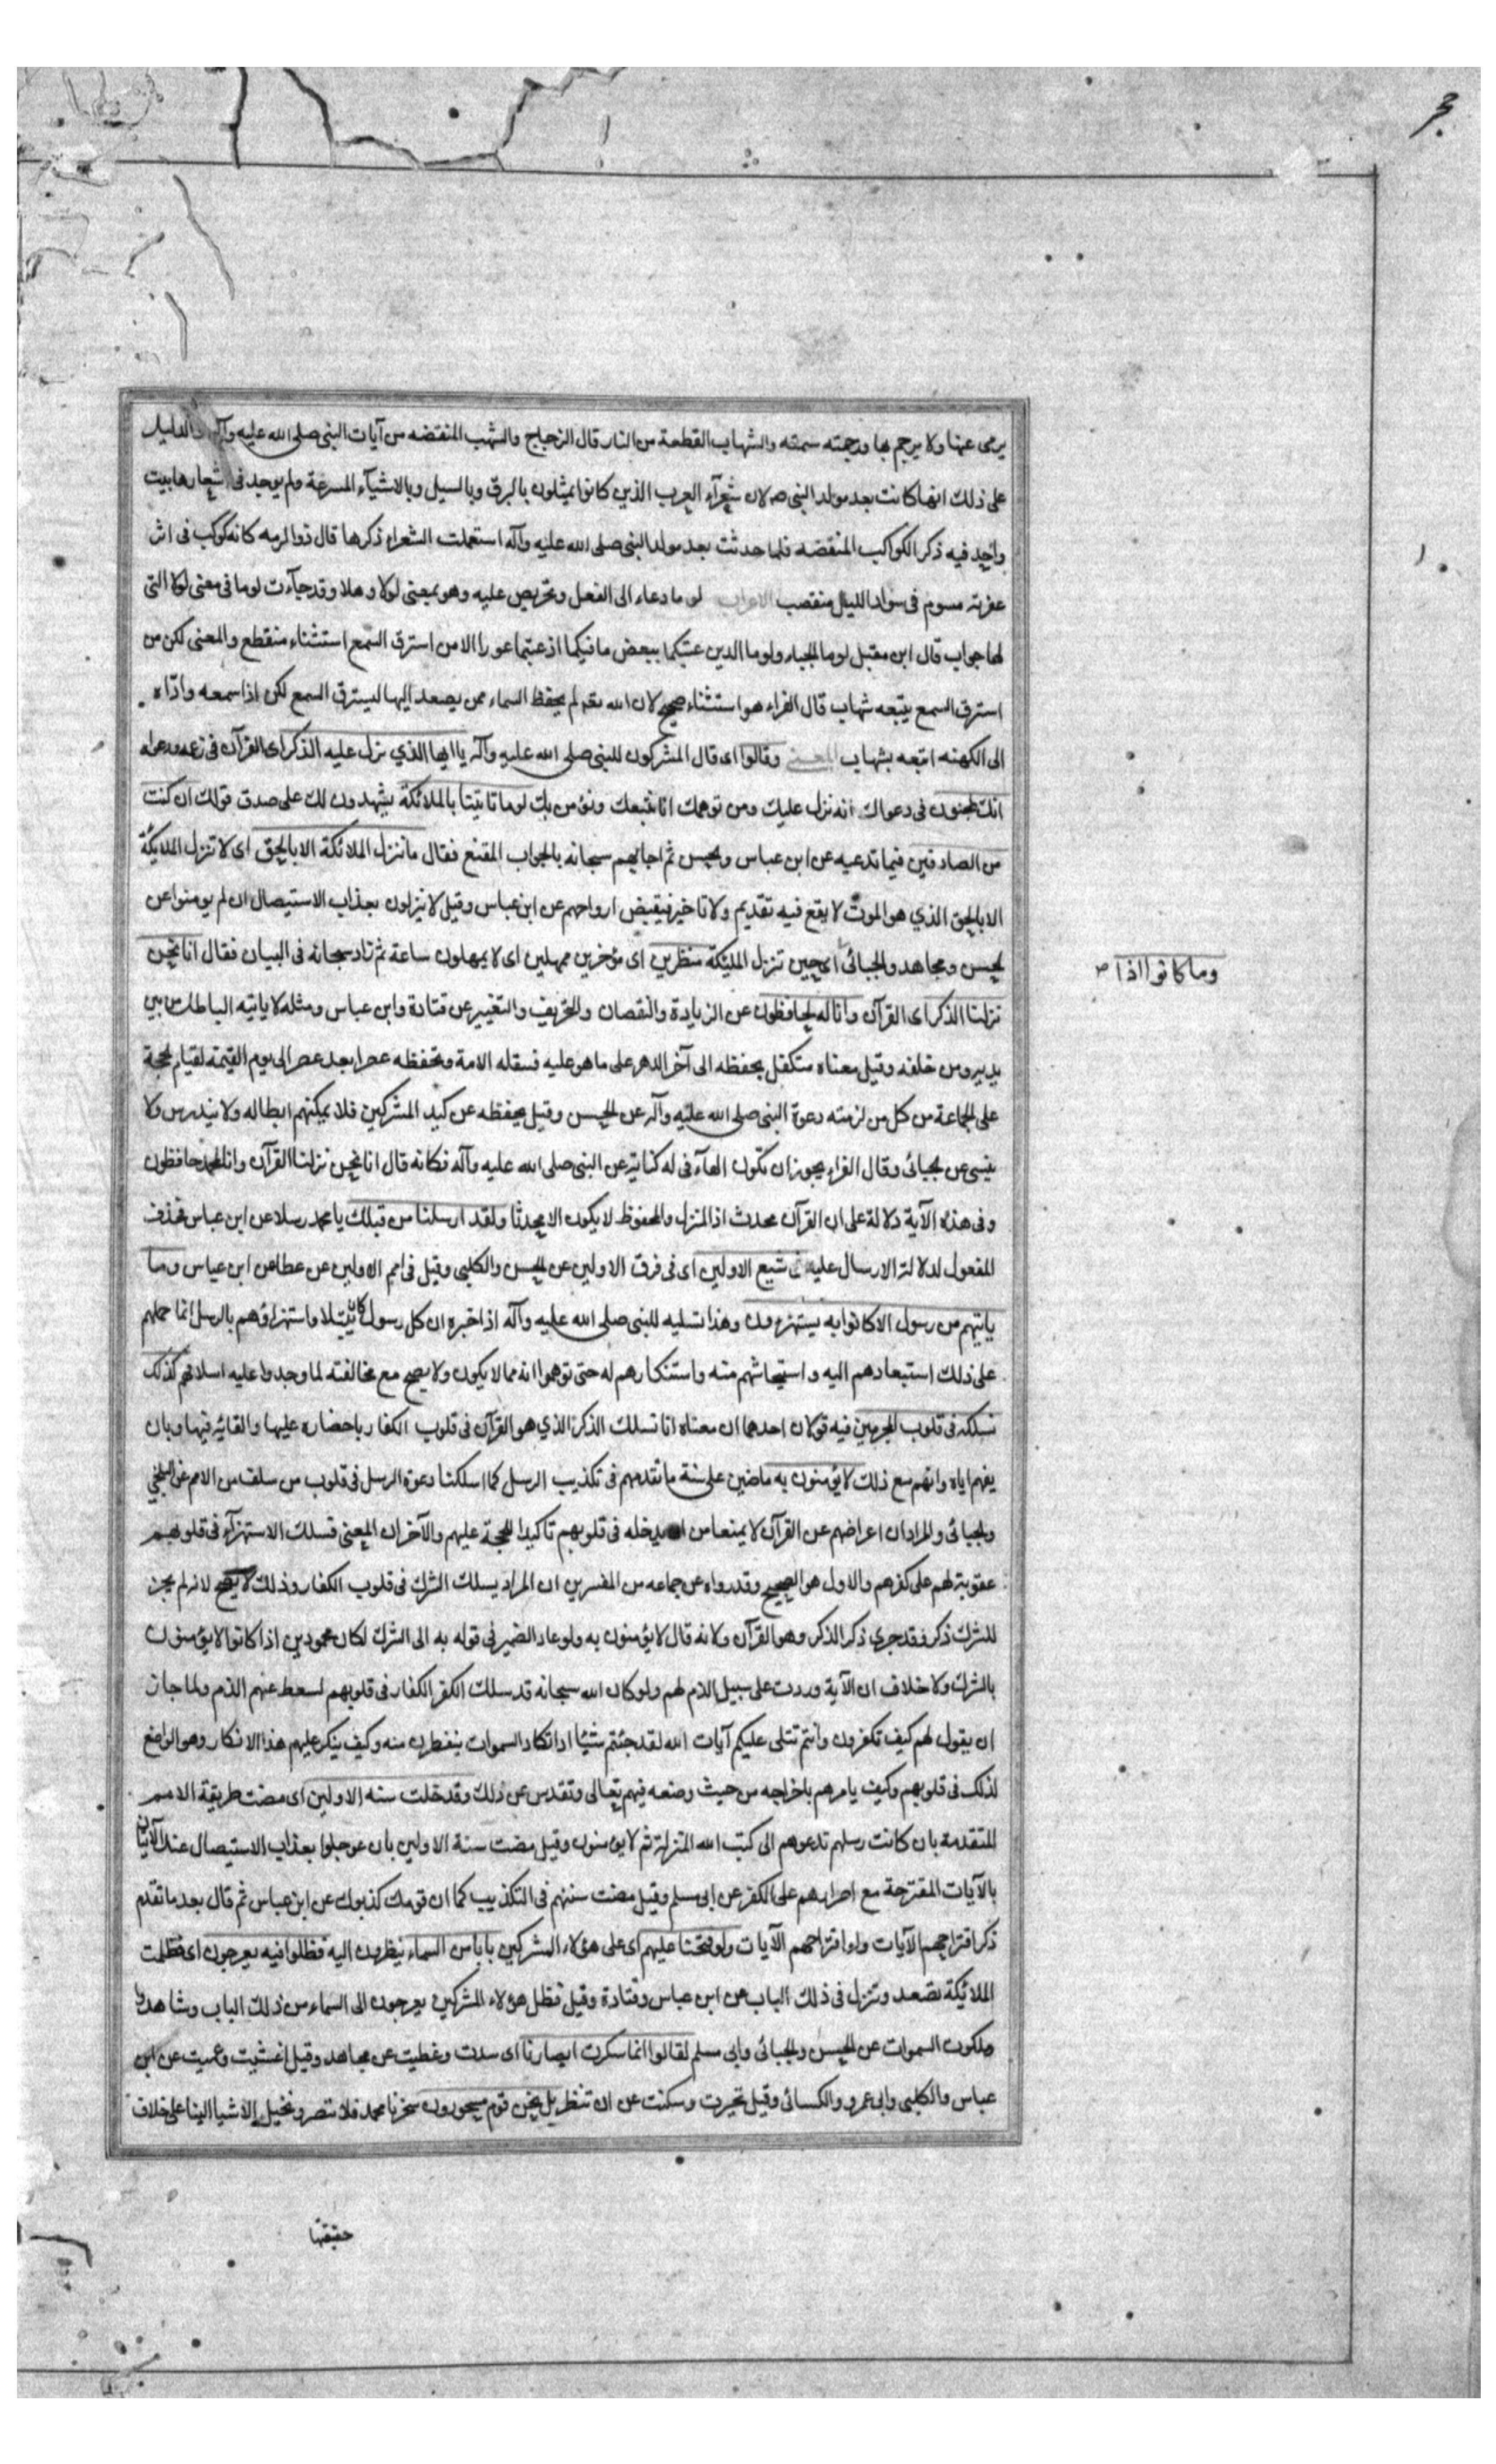 حجر
يرمى عنها ولا يرجم بها ورجمته سمته والشهاب القطعة من النار قال الزجاج والشهب المنقضه من آيات النبى صلى الله عليه وآله والدليل
على ذلك انها كانت بعد مولد النبى صه لان شعرآء العرب الذين كانوا يمثلون بالبرق وبالسيل وبالاشيآء المسرعة ولم يوجد فى اشعارها بيت
واحد فيه ذكر الكواكب المنقضه فلما حدثت بعد مولد النبى صلى الله عليه وآله استعملت الشعراء ذكرها قال ذوالرمه كانه كوكب فى اثر
عفرية مسوم فى سواد الليل منقضب الاعراب لو ما دعاء الى الفعل وتحريص عليه وهو بمعنى لولا وهلا وقد جآءت لوما فى معنى لولا التى
لها جواب قال ابن مقبل لوما الحياء ولوما الدين عبتكما ببعض ما فيكما اذ عبتما عورا الا من استرق السمع استثناء منقطع والمعنى لكن من
استرق السمع يتبعه شهاب قال الفراء هو استثناء صحيح لان الله تعم لم يحفظ السماء ممن يصعد اليها ليسترق السمع لكن اذا سمعه وادّاه
الى الكهنه اتبعه بشهاب المعنى وقالوا اى قال المشركون للنبى صلى الله عليه وآله يا ايها الذي نزل عليه الذكر اى القرآن فى زعمه ودعواه
انك لمجنون فى دعواك انه نزل عليك ومن توهمك انا نتبعك ونؤمن بك لوما تاتيتا بالملائكة يشهدون لك على صدق قولك ان كنت
من الصادقين فيما تدعيه عن ابن عباس والحسن ثم اجابهم سبحانه بالجواب المقنع فقال ما ننزل الملائكة الا بالحق اى لا تنزل الملايكة
الا بالحق الذي هو الموت لا يقع فيه تقديم ولا تاخير فيقبض ارواحهم عن ابن عباس وقيل لا ينزلون بعذاب الاستيصال ان لم يومنوا عن
الحسن ومجاهد والجبائى اى حين تنزل المليكة منظرين اى مؤخرين ممهلين اى لا يمهلون ساعة ثم زاد سبحانه فى البيان فقال انا نحن
وما كانوا اذا
نزلنا الذكر اى القرآن وانا له لحافظون عن الزيادة والنقصان والتحريف والتغيير عن قتادة وابن عباس ومثله لا ياتيه الباطل من بين
يديه ومن خلفه وقيل معناه متكفل بحفظه الى آخر الدهر على ما هو عليه فسقله الامة وتحفظه عصرا بعد عصر الى يوم القيمة لقيام الحجة
على الجماعة من كل من لزمته دعوة النبى صلى الله عليه وآله عن الحسن وقيل يحفظه عن كيد المشركين فلا يمكنهم ابطاله ولا يندرس ولا
ينسى عن الجبائى وقال الفراء يجوز ان تكون الهآء فى له كناية عن النبى صلى الله عليه وآله فكانه قال انا نحن نزلنا القرآن وانا لمحمد حافظون
وفى هذه الآية دلالة على ان القرآن محدث اذ المنزل والمحفوظ لا يكون الا محدثا ولقد ارسلنا من قبلك يا محمد رسلا عن ابن عباس فحذف
المفعول لدلالة الارسال عليه فى شيع الاولين اى فى فرق الاولين عن الحسن والكلبى وقيل فى امم الاولين عن عطا عن ابن عباس وما
ياتيهم من رسول الا كانوا به يستهزءون وهذا تسليه للنبى صلى الله عليه وآله اذ اخبره ان كل رسول كان مبتلا واستهزاؤهم بالرسل انما حملهم
على ذلك استبعادهم اليه واستيحاشهم منه واستنكارهم له حتى توهموا انه مما لا يكون ولا يصح مع مخالفته لما وجدوا عليه اسلافهم كذلك
نسلكه فى قلوب المجرمين فيه قولان احدهما ان معناه انا نسلك الذكر الذي هو القرآن فى قلوب الكفار باحضاره عليها والقائه فيها وبان
يفهم اياه وانهم مع ذلك لا يؤمنون به ماضين على سنة ما تقدمهم فى تكذيب الرسل كما اسلكنا دعوة الرسل فى قلوب من سلف من الامم عن البلخي
والجبائى والمراد ان اعراضهم عن القرآن لا يمنعنا من يدخله فى قلوبهم تاكيدا للحجة عليهم والآخر ان المعنى نسلك الاستهزآء فى قلوبهم
عقوبة لهم على كفرهم والاول هو الصحيح وقد رواه عن جماعه من المفسرين ان المراد يسلك الشرك فى قلوب الكفار وذلك لا يصح لانه لم يجز
للشرك ذكر فقد جرى ذكر الذكر وهو القرآن ولانه قال لا يؤمنون به ولو عاد الضمير فى قوله به الى الشرك لكان محمودين اذا كانوا لا يؤمنون
بالشرك ولا خلاف ان الآية وردت على سبيل الذم لهم ولو كان الله سبحانه قد سلك الكفر الكفار فى قلوبهم لسعط عنهم الذم ولما جاز
ان يقول لهم كيف تكفرون وانتم تتلى عليكم آيات الله لقد جئتم شيئا ادا تكاد السموات ينفطرن منه وكيف ينكر عليهم هذا الانكار وهو الواضع
لذلك فى قلوبهم وكيف يامرهم باخراجه من حيث وضعه فيهم تعالى وتقدس عن ذلك وقد خلت سنه الاولين اى مضت طريقة الامم
المتقدمة بان كانت رسلهم تدعوهم الى كتب الله المنزلة ثم لا يومنون وقيل مضت سنة الاولين بان عوجلوا بعذاب الاستيصال عند الاتيان
بالآيات المقترحة مع اصرارهم على الكفر عن ابى مسلم وقيل مضت سنتهم فى التكذيب كما ان قومك كذبوك عن ابن عباس ثم قال بعد ما تقدم
ذكر اقتراحهم الآيات ولو افتراحهم الآيات ولو فتحنا عليهم اى على هؤلاء المشركين بابا من السماء ينظرون اليه فظلوا فيه يعرجون اى فظلت
الملائيكة تصعد وتنزل فى ذلك الباب عن ابن عباس وقتادة وقيل فظل هؤلاء المشركين يعرجون الى السماء من ذلك الباب وشاهدوا
ملكوت السموات عن الحسن والجبائى وابى مسلم لقالوا انما سكرت ابصارنا اى سدت وغطيت عن مجاهد وقيل اغشيت وعميت عن ابن
عباس والكلبى وابى عمرو والكسائى وقيل تحيرت وسكنت عن ان تنظر بل نحن قوم مسحورون سحرنا محمد فلا نتصر ونخيل الاشيا الينا على خلاف
حقيقتها